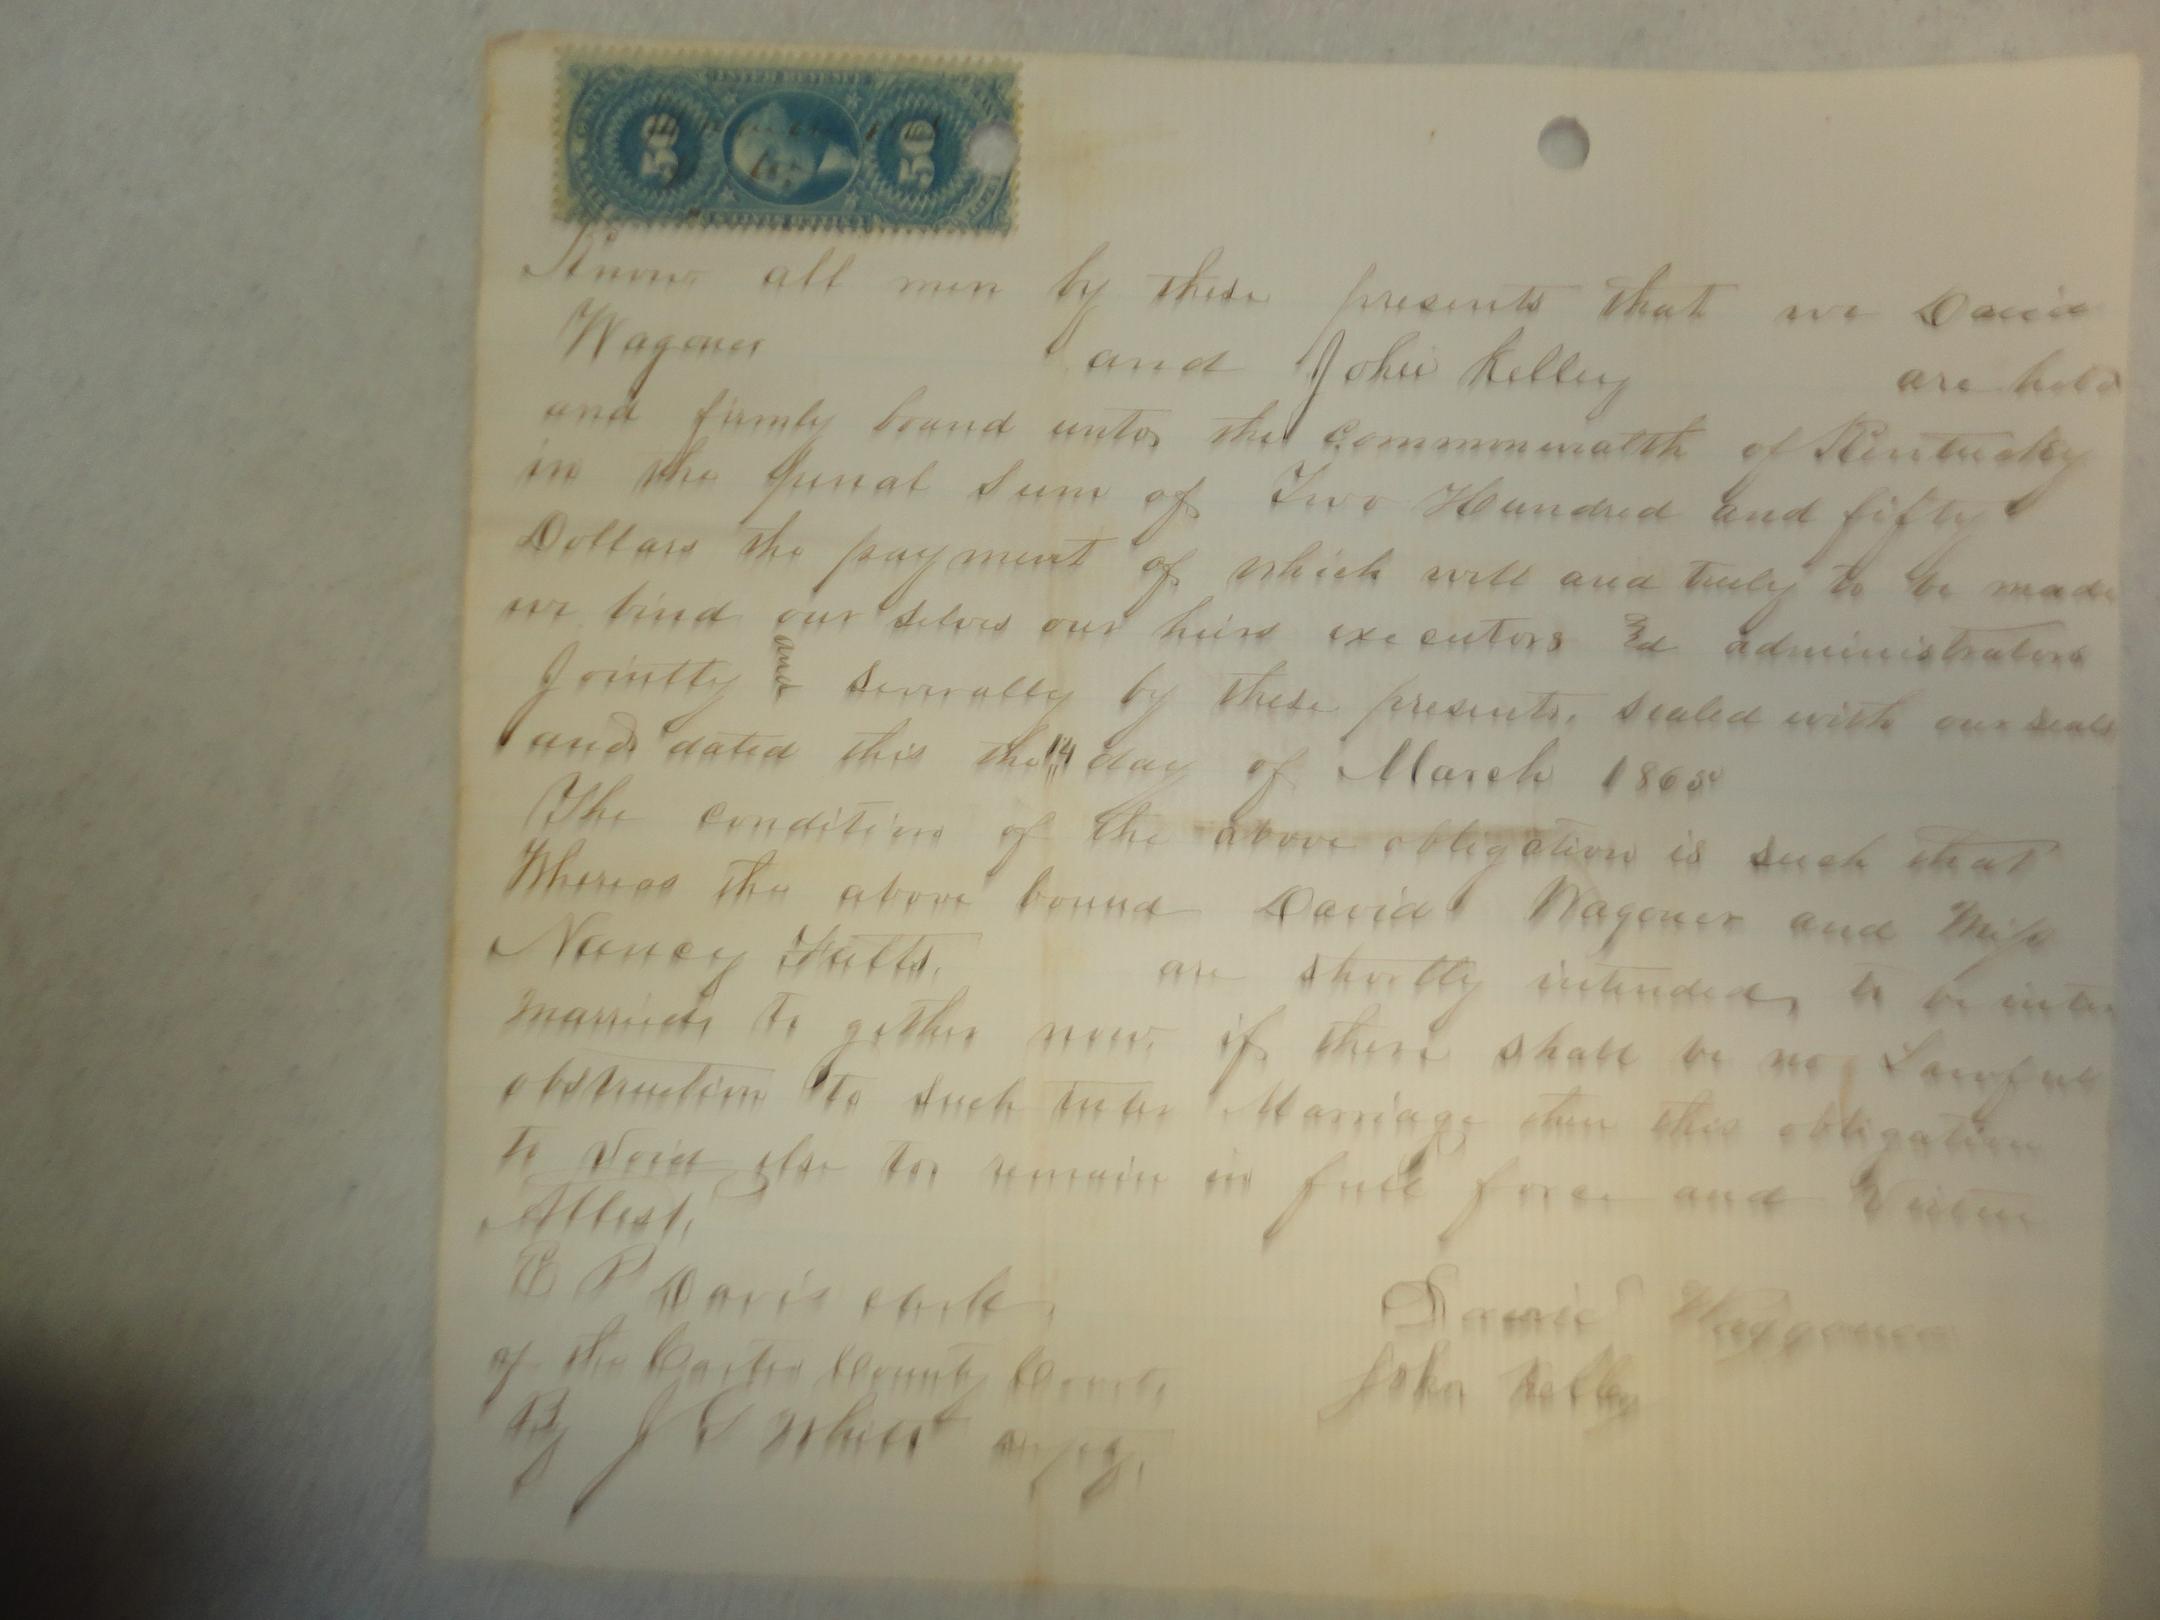 INTER. REVENUE
50 50
Know all men by these presents that we David
Wagoner and John Kelley are held
and firmly bound unto the Commonwealth of Kentucky
in the penal Sum of Two Hundred and fifty
Dollars the payment of which will and truly to be made
we bind our selves our heirs executors & administrators
Jointly and severally by these presents, sealed with our seals
and dated this the 14 day of March 1865
The condition of the above obligation is such that
Whereas the above bound David Wagoner and Miss
Nancy Fults, are shortly intended to be inter
married to gether now if there shall be no Lawful
obstruction to such inter Marriage then this obligation
to void else to remain in full force and Virtue
Attest,
E P Davis clerk
of the Carter County Court,
By J S Whitt depty,
David Waggoner
John Kelley